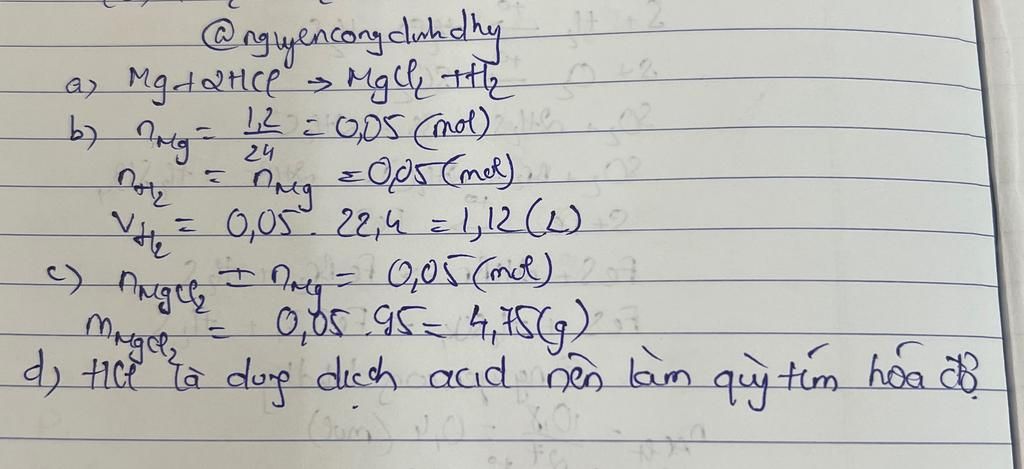 @nguyencongdinhdhy
a) Mg + 2HCl → MgCl2 + H2
b) nMg = 1,2/24 = 0,05 (mol)
nH2 = nMg = 0,05 (mol)
VH2 = 0,05 . 22,4 = 1,12 (L)
c) nMgCl2 = nMg = 0,05 (mol)
mMgCl2 = 0,05 . 95 = 4,75 (g)
d) HCl là dung dịch acid nên làm quỳ tím hóa đỏ